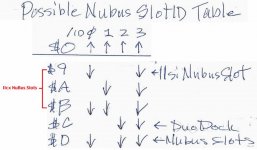 Possible Nubus SlotID Table
/10∅ 1 2 3
$0 ↑ ↑ ↑ ↑
$9 ↓ ↓ ← IIsi NubusSlot
$A ↓ ↓
IIcx NuBus Slots
$B ↓ ↓ ↓
$C ↓ ↓ ← DuoDock
$D ↓ ↓ ↓ ← Nubus slots